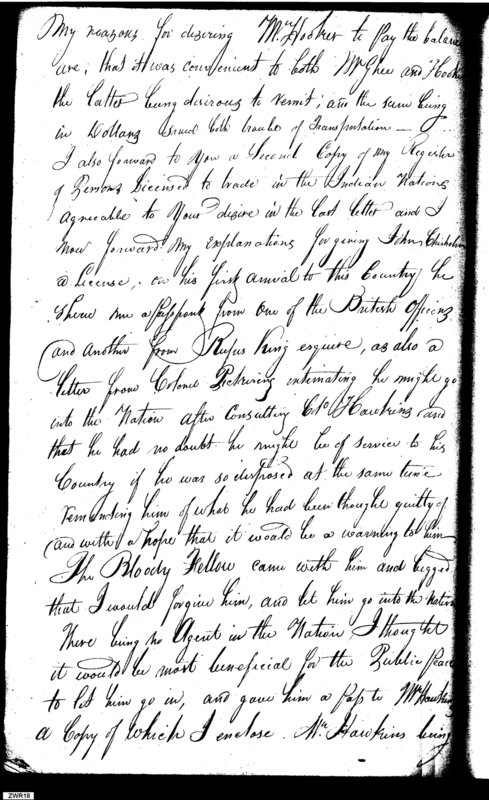 My reasons for desiring Mr. Hooker to pay the balance
are, that it was convenient to both McGhee and Hooker
the latter being desirous to remit, and the sum being
in Dollars saved both trouble of Transportation —
I also forward to You a Second Copy of my Register
of Persons Licensed to trade in the Indian Nations
agreeable to Your desire in the last letter and I
now forward My explanations for giving John Chisholm
a License; on his first arrival to this Country he
Shew me a Passport from One of the British Officers
and another from Rufus King esquire, as also a
letter from Colonel Pickering intimating he might go
into the Nation after Consulting Colo Hawkins and
that he had no doubt he might be of service to his
Country if he was so disposed at the same time
reminding him of what he had been thought guilty of
and with a hope that it would be a warning to him
The Bloody Fellow came with him and begged
that I would forgive him, and let him go into the Nation
There being no Agent in the Nation I thought
it would be most beneficial for the Public Peace
to let him go in, and gave him a Pass to Mr Hawkins
a Copy of which I enclose. Mr. Hawkins being
ZWR18